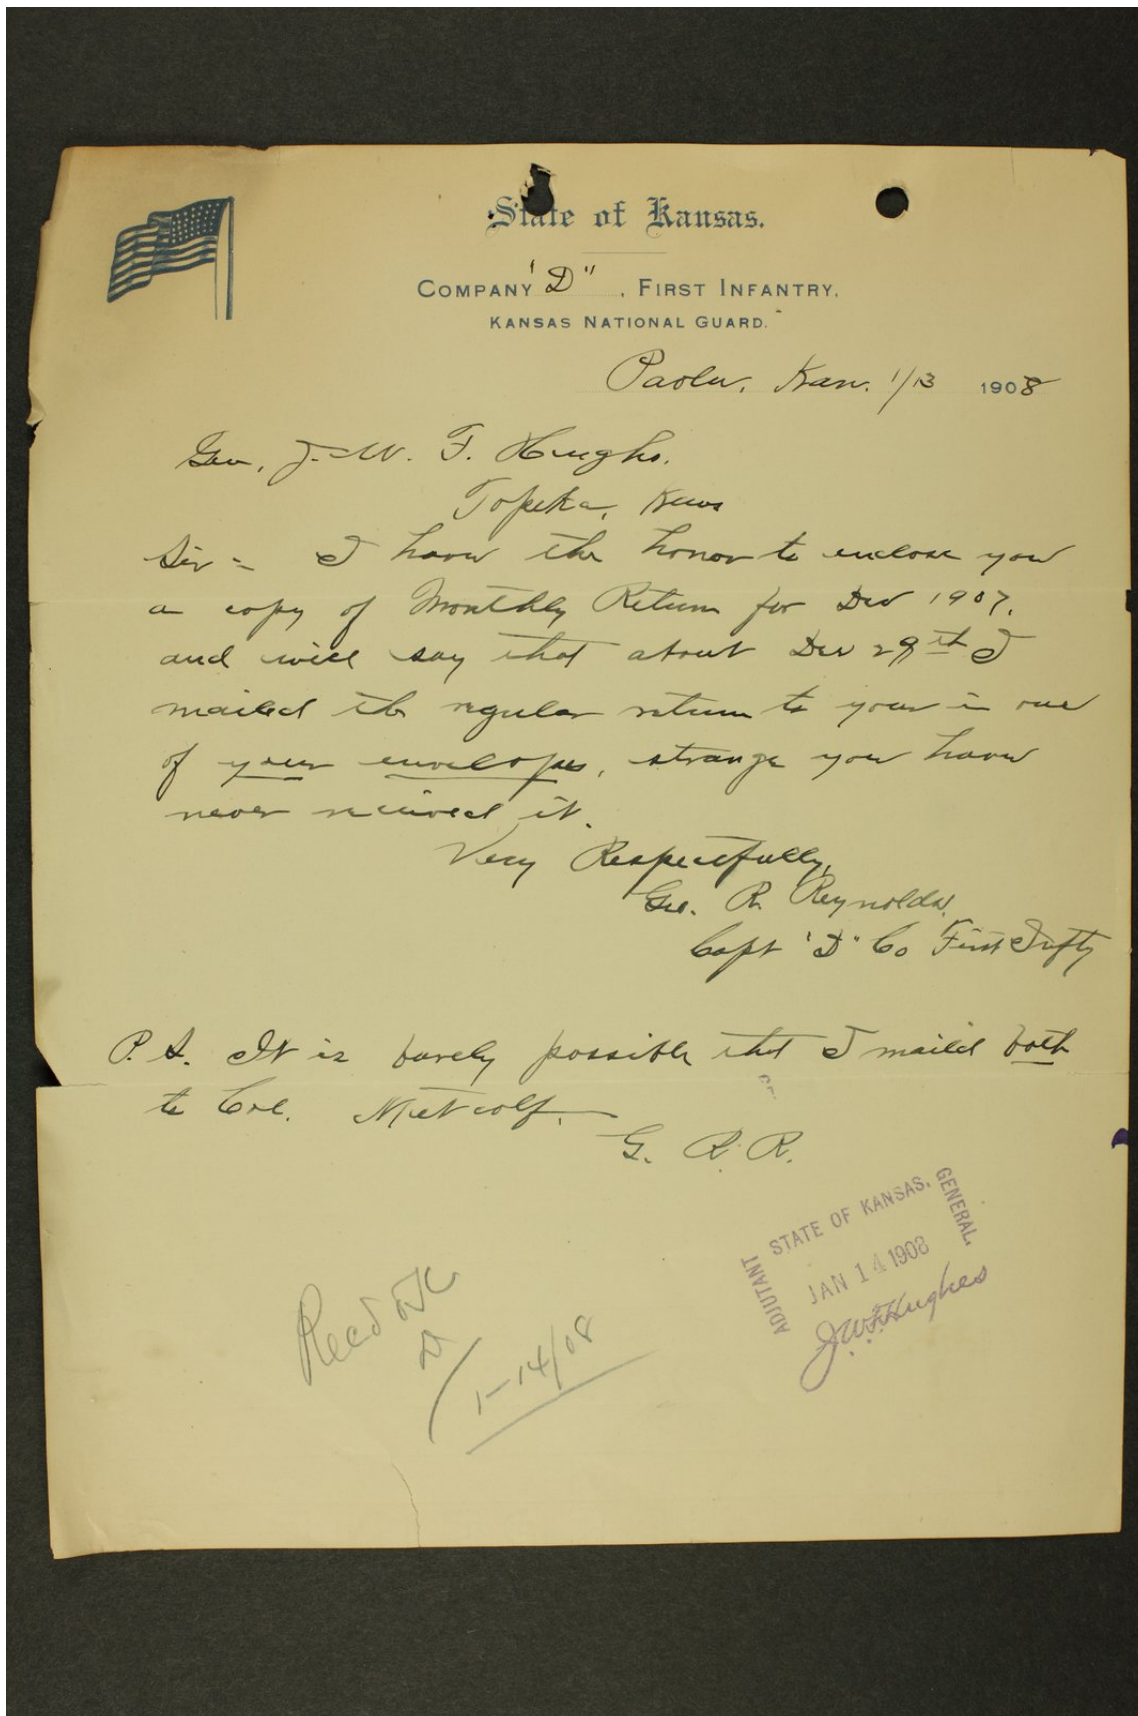 State of Kansas.
COMPANY "D", FIRST INFANTRY,
KANSAS NATIONAL GUARD.
Paola, Kan. 1/13 1908
Gen. J. W. F. Hughs.
Topeka, Kans
Sir = I have the honor to enclose you
a copy of Monthly Return for Dec 1907.
and will say that about Dec 29th I
mailed the regular return to your in one
of your envelopes, strange you have
never received it.
Very Respectfully,
Geo. R. Reynolds.
Capt "D" Co First Infty
P. S. It is barely possible that I mailed both
to Col. Metcalf.
G. R. R.
ADJUTANT STATE OF KANSAS. GENERAL.
JAN 14 1908
JWFHughes
Recd OK
1-14/08